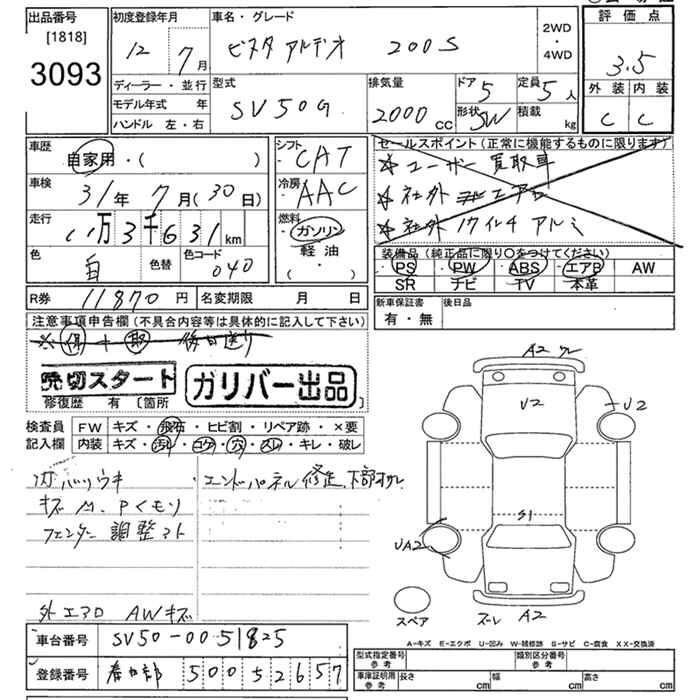 出品番号
[1818]
3093
初度登録年月
12年 7月
車名・グレード
ビスタアルデオ 200S
2WD
・
4WD
評価点
3.5
外装 内装
C C
ディーラー・並行
モデル年式 年
ハンドル 左・右
型式
SV50G
排気量
2000 CC
ドア 5
形状 SW
定員 5人
積載 kg
車歴
自家用・( )
車検
31年 7月(30日)
走行
11万3千631km
色
白
色替
色コード
040
シフト
CAT
冷房
AAC
燃料
ガソリン
軽油
・( )
セールスポイント(正常に機能するものに限ります)
☆ユーザー買取車
☆社外 エアロ
☆社外17インチアルミ
装備品(純正品に限り○をつけてください)
PS PW ABS エアB AW
SR ナビ TV 本革
R券 11870円 名変期限 月 日
新車保証書
有・無
後日品
注意事項申告欄(不具合内容等は具体的に記入して下さい)
※保+取 後日送り
売切スタート
ガリバー出品
修復歴 有 [箇所
検査員
記入欄
FW キズ・飛石・ヒビ割・リペア跡・×要
内装 キズ・汚れ・コゲ・穴・スレ・キレ・破レ
キズ M.Pくモリ
フェンダー調整アト
エンドパネル修正、下部サビ
外エアロ AWキズ
A2
U2
U2
S1
UA2
スペア
ズレ A2
A-キズ E-エクボ U-凹み W-補修跡 S-サビ C-腐食 XX-交換済
車台番号 SV50-0051825
登録番号 春日部 500 5 2657
型式指定番号
参考
類別区分番号
参考
車庫証明用
参考
長さ cm 幅 cm 高さ cm